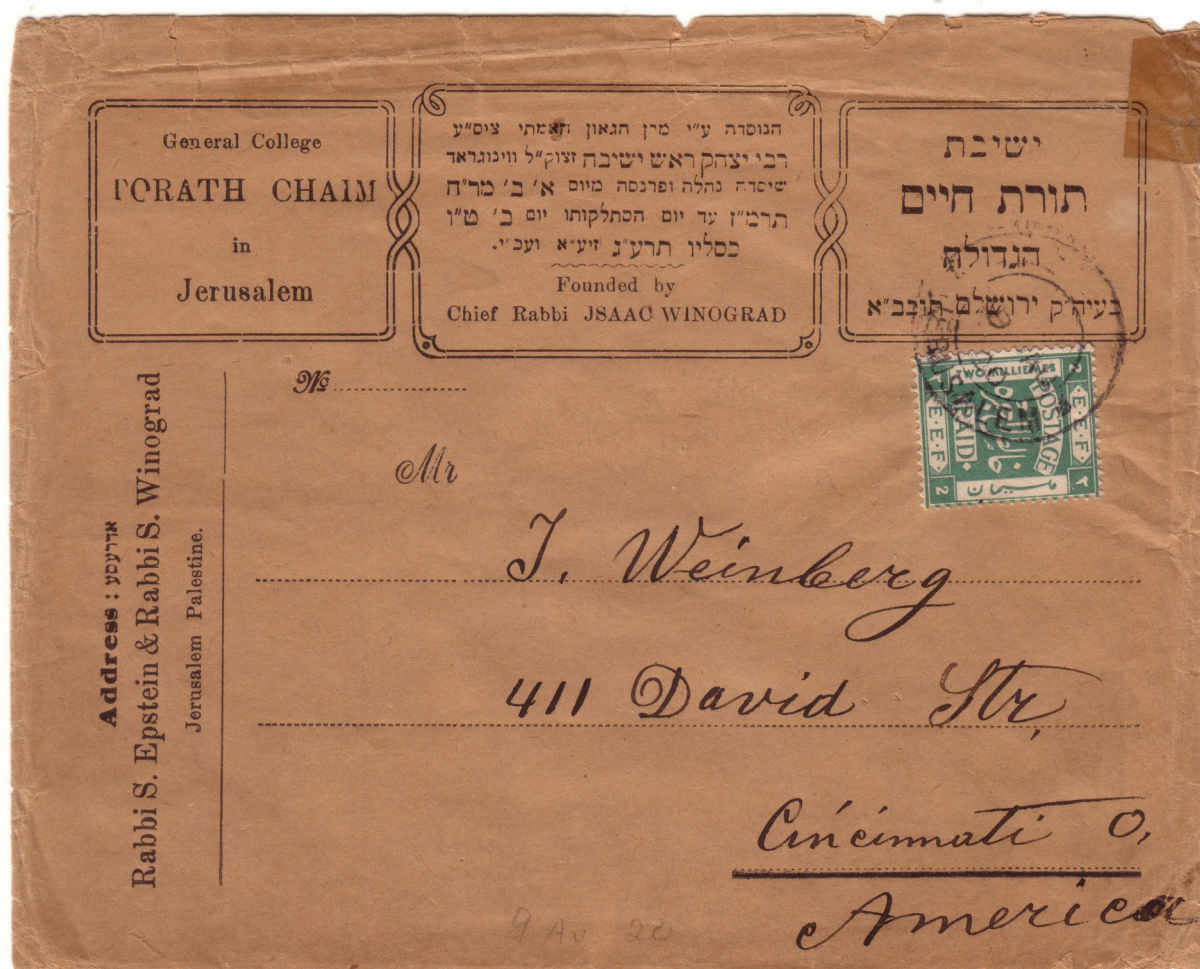 General College
TORATH CHAIM
in
Jerusalem
הנוסדה ע״י מרן הגאון האמתי ציס״ע
רבי יצחק ראש ישיבה זצוק״ל ווינוגראד
שיסדה נהלה ופרנסה מיום א׳ ב׳ מר״ח
תרמ״ז עד יום הסתלקותו יום ב׳ ט״ו
כסליו תרע״ג זיע״א ועכ״י.
Founded by
Chief Rabbi JSAAC WINOGRAD
ישיבת
תורת חיים
הגדולה
בעיה״ק ירושלם תובב״א
JERUSALEM
TWO MILLIEMES
E.E.F.
PAID
POSTAGE
E.E.F.
2
2
٢
٢
Address: אדרעסע
Rabbi S. Epstein & Rabbi S. Winograd
Jerusalem Palestine.
No
Mr
J. Weinberg
411 David Str,
Cincinnati O,
America
9 Au 20